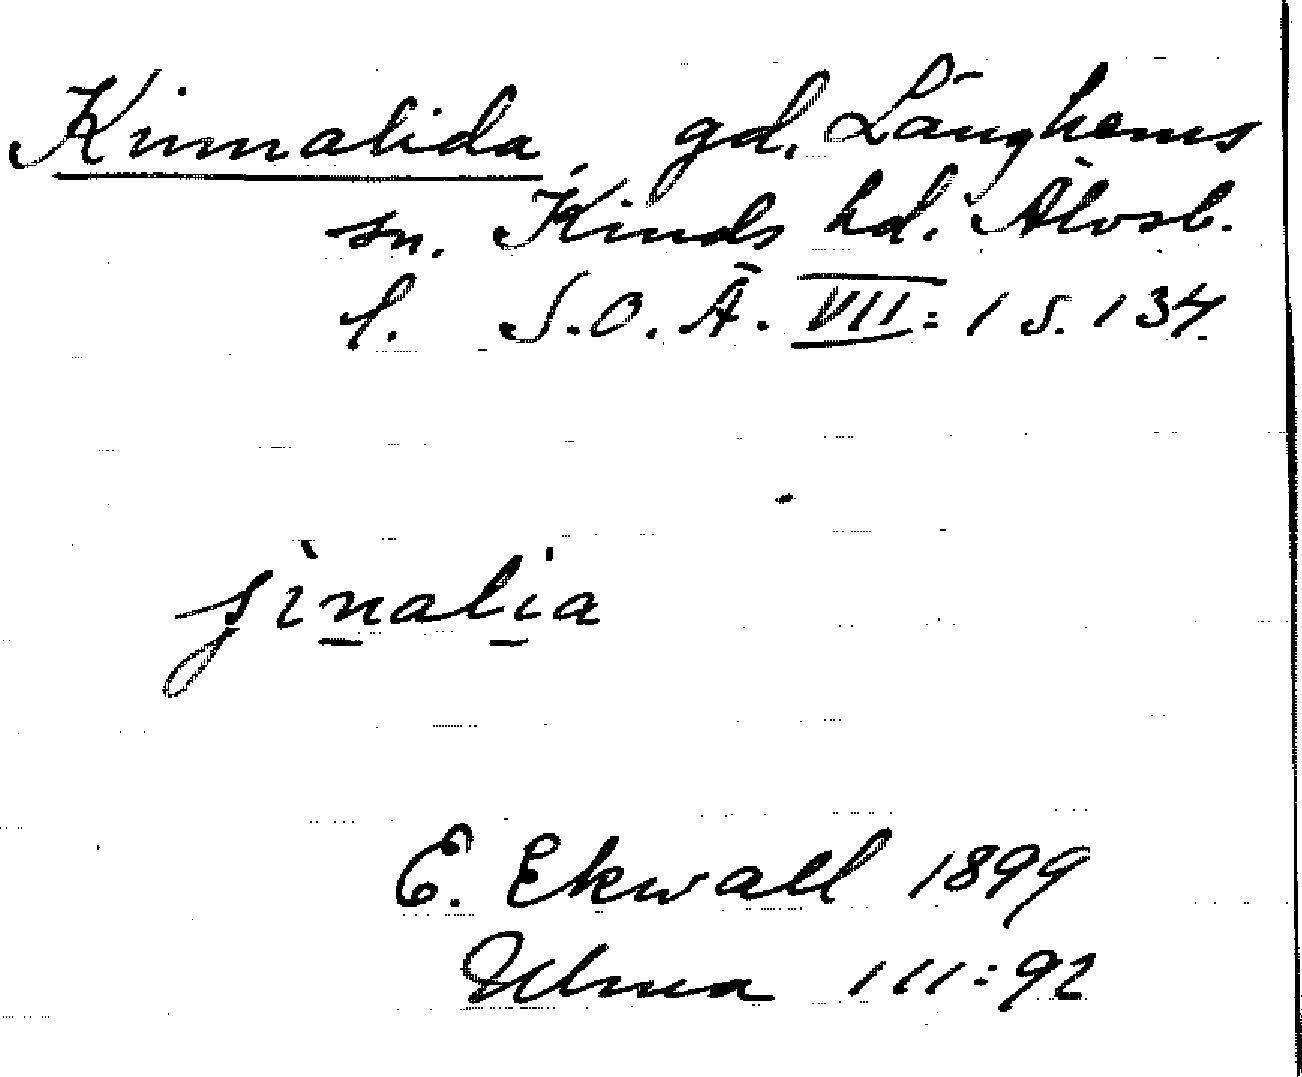 Kinnalida, gd, Länghems
sn. Kinds hd. Älvsb.
l. S.O.Ä. VII:1 s. 134
E. Ekwall 1899
Ulma 111:92